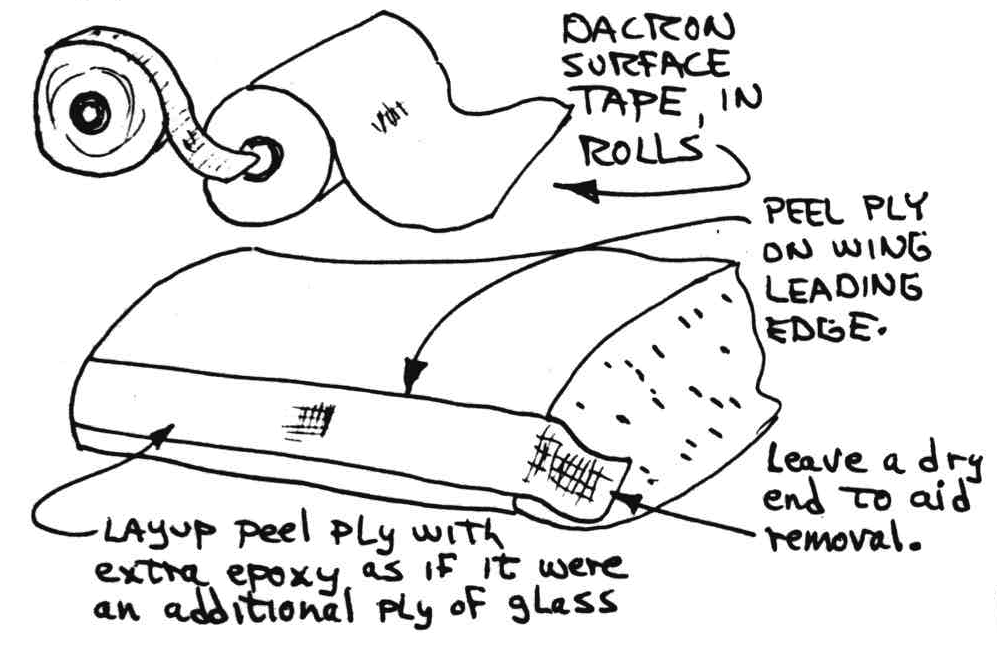 DACRON
SURFACE
TAPE, IN
ROLLS
PEEL PLY
ON WING
LEADING
EDGE.
Leave a dry
end to aid
removal.
LAyup peel ply with
extra epoxy as if it were
an additional ply of glass